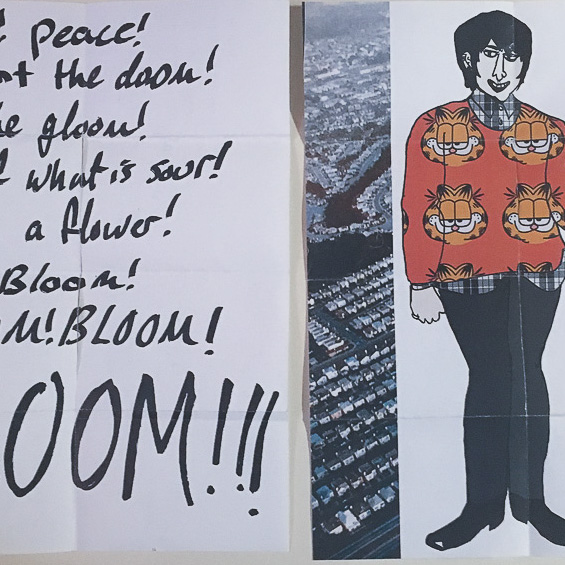 peace!
the doom!
gloom!
what is sour!
a flower!
Bloom!
M! BLOOM!
OOM!!!